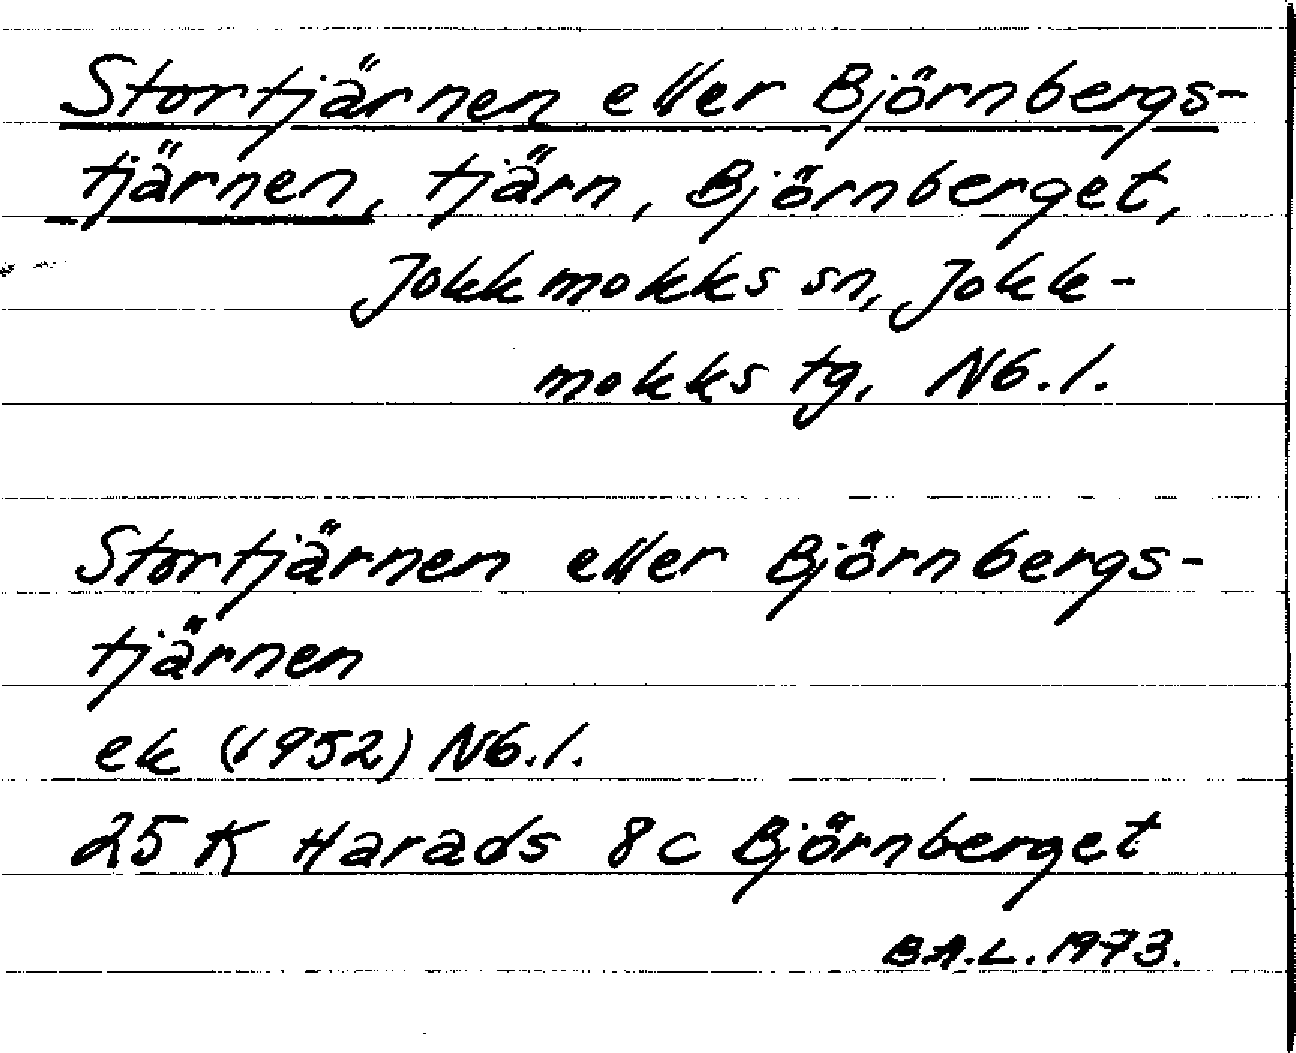 Stortjärnen eller Björnbergs-
tjärnen, tjärn, Björnberget,
Jokkmokks sn, Jokk-
mokks tg, Nb.l.
Stortjärnen eller Björnbergs-
tjärnen
ek (1952) Nb.l.
25 K Harads 8c Björnberget
B.A.L. 1973.